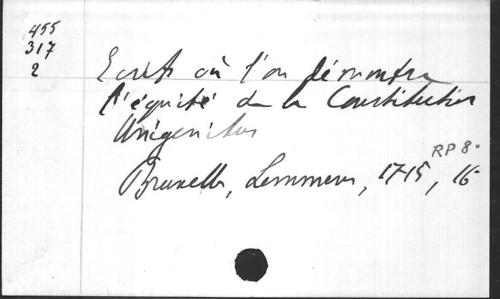 455
317
2
Ecrit où l'on démontre
l'équité de la Constitution
Unigenitus
RP 8°
Bruxelles, Lemmens, 1715, 16°